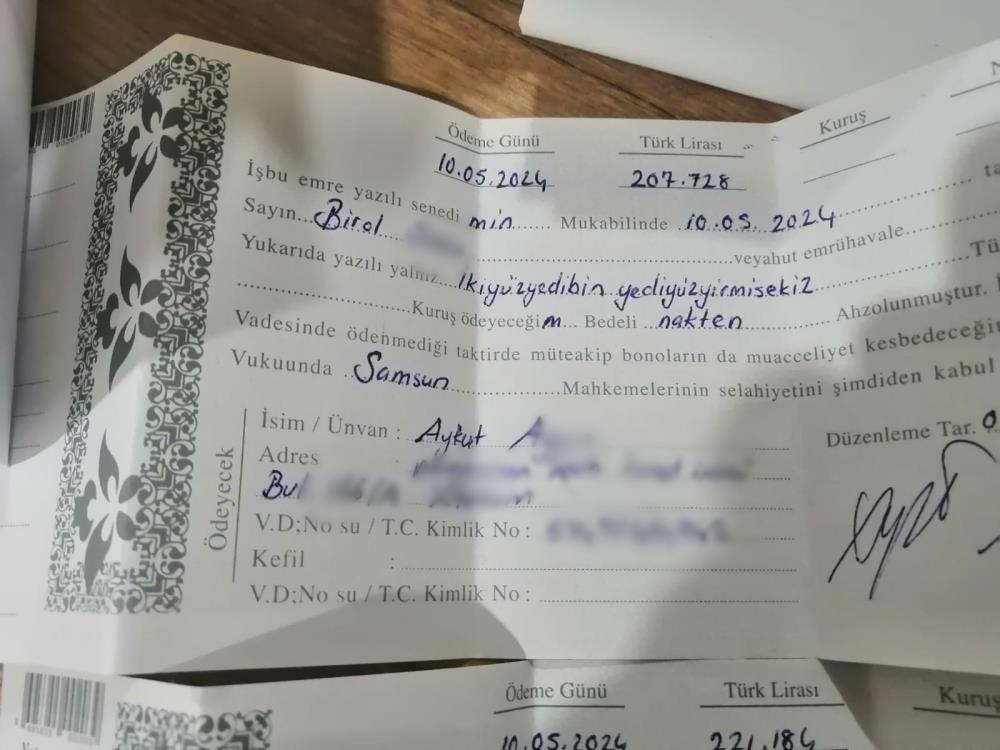 Ödeme Günü Türk Lirası Kuruş
10.05.2024 207.728
İşbu emre yazılı senedi min Mukabilinde 10.05.2024
Sayın Birol veyahut emrühavale
Yukarıda yazılı yalnız İkiyüzyedibin yediyüzyirmisekiz
Kuruş ödeyeceğim Bedeli nakten Ahzolunmuştur.
Vadesinde ödenmediği taktirde müteakip bonoların da muacceliyet kesbedeceğin
Vukuunda Samsun Mahkemelerinin selahiyetini şimdiden kabul
Ödeyecek
İsim / Ünvan : Aykut
Adres
Bul
V.D;No su / T.C. Kimlik No :
Kefil :
V.D;No su / T.C. Kimlik No :
Düzenleme Tar.
Ödeme Günü Türk Lirası Kuruş
10.05.2024 221.184